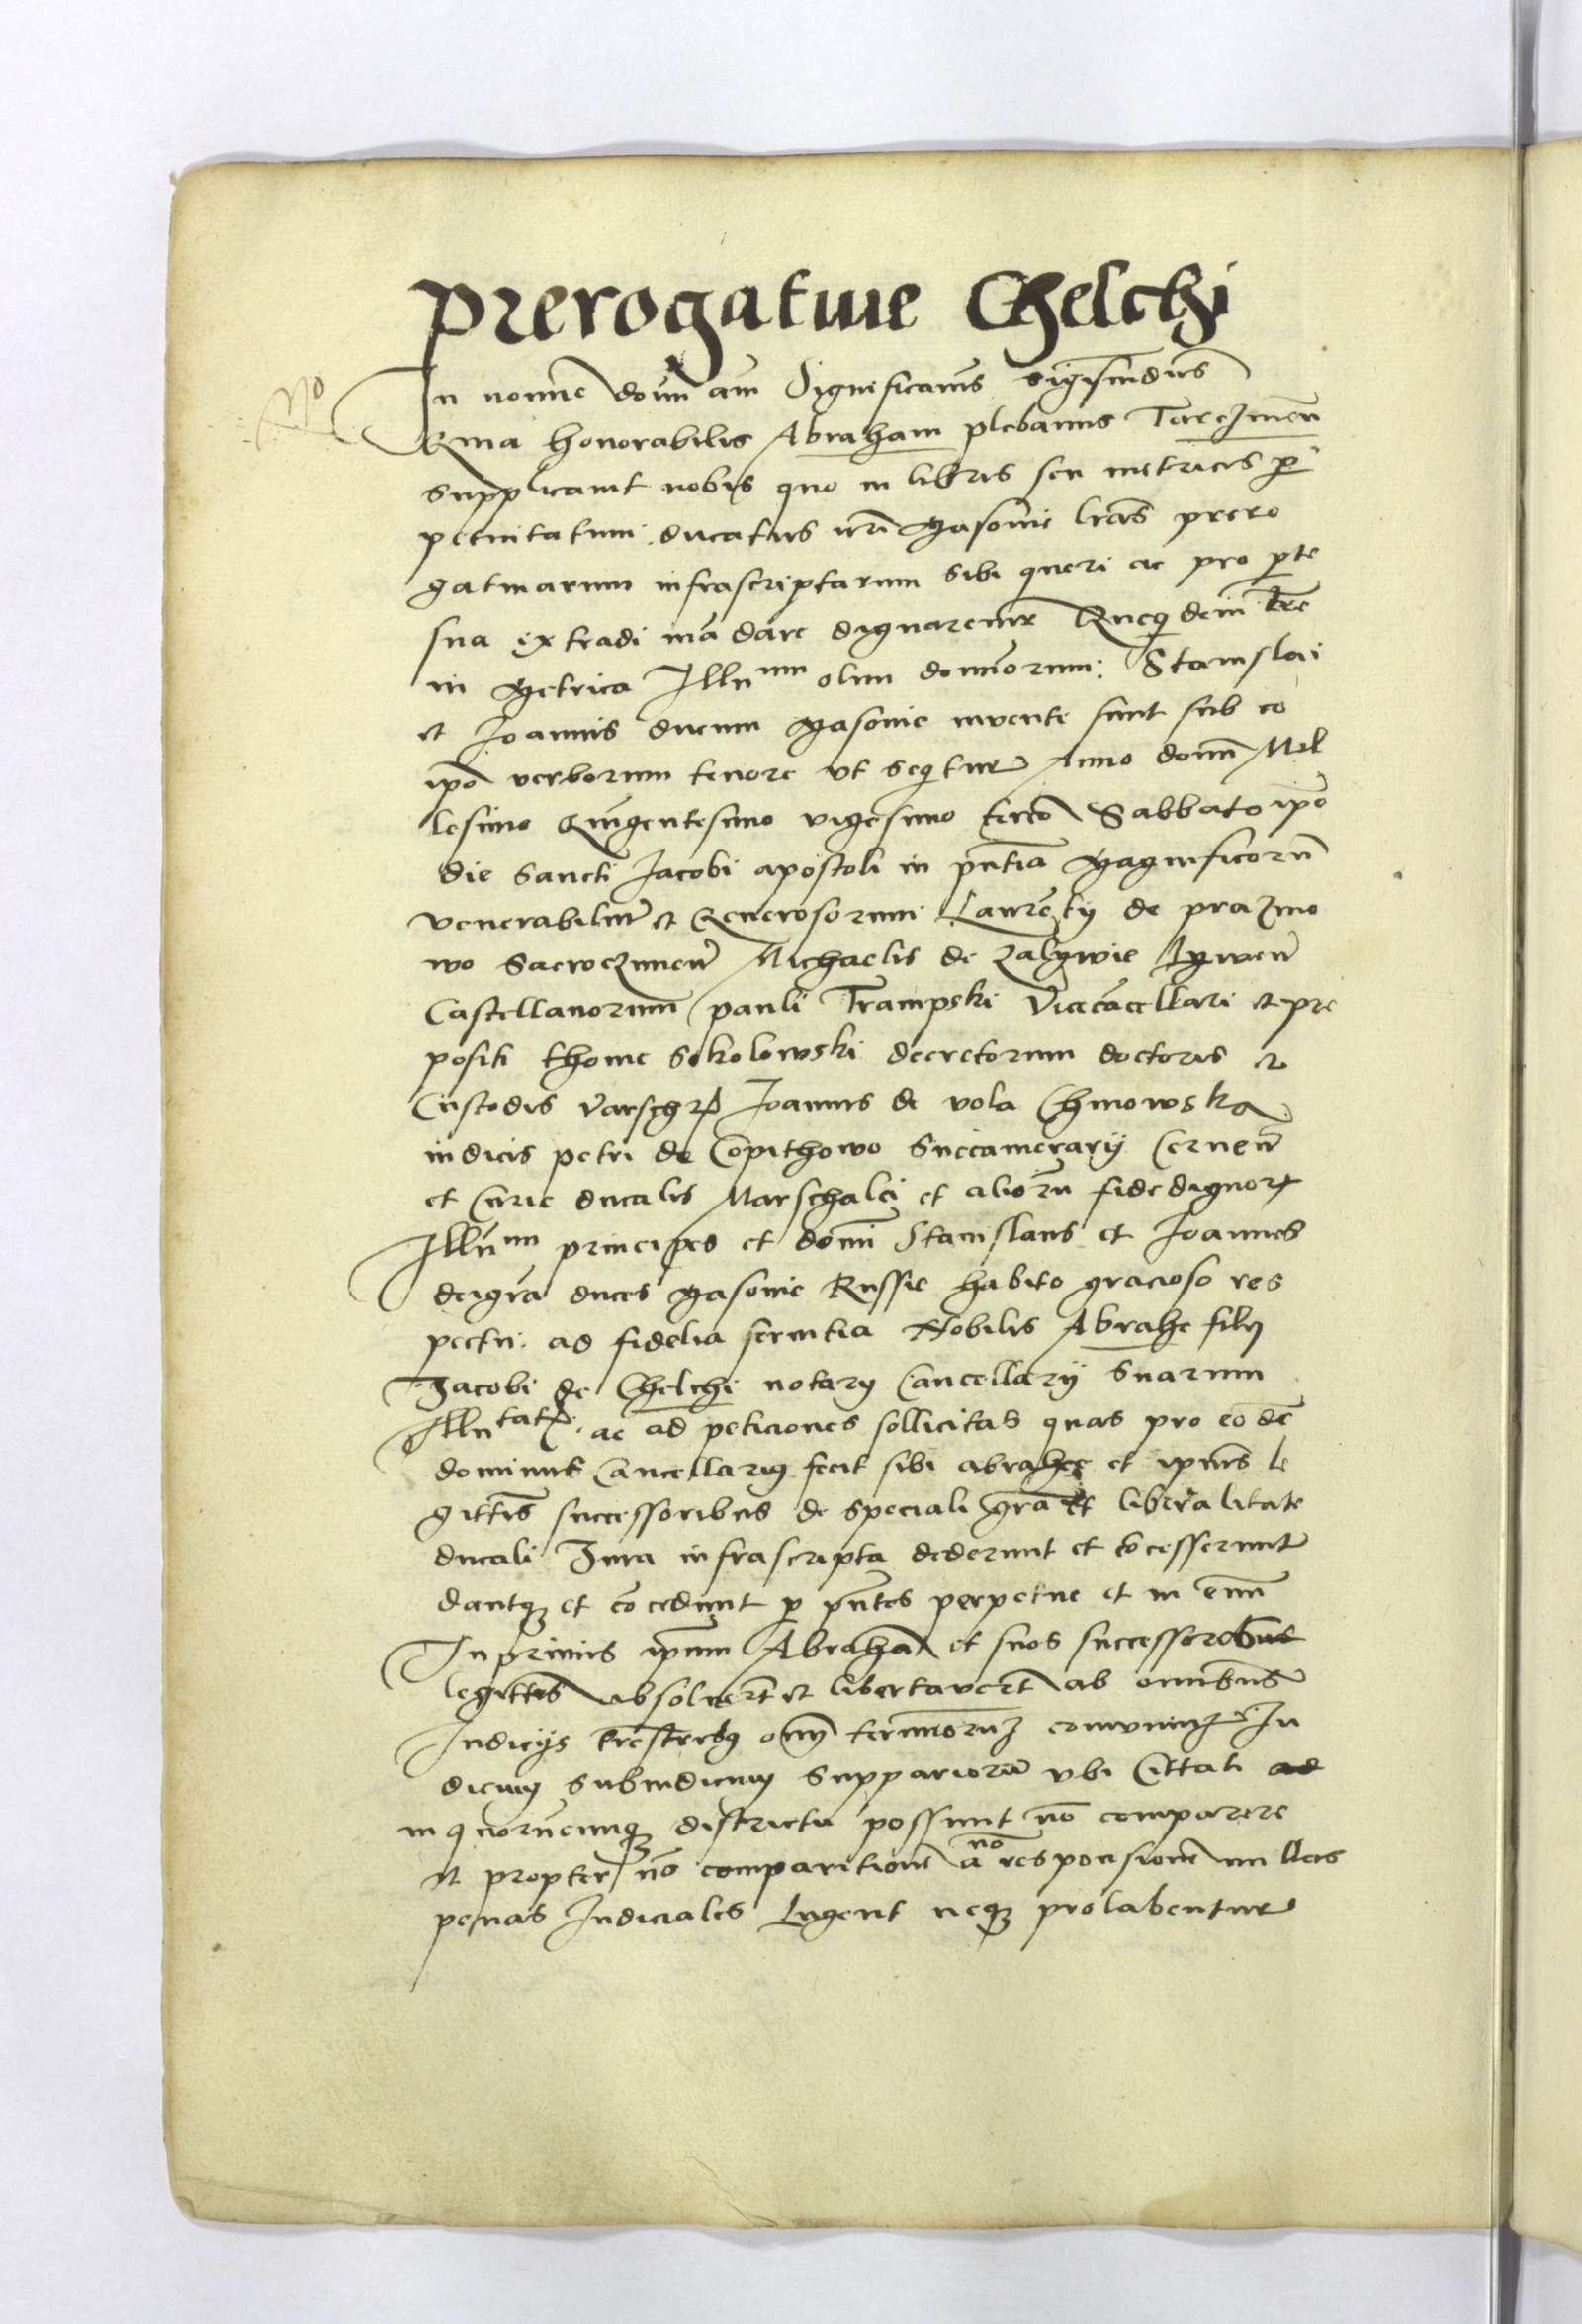 Prerogatiue Chelchi
In nomine domini amen Significamus Sigismundus
Quia honorabilis Abraham plebanus Tarczinen
supplicauit nobis quo in libris seu metricis per
petuitatum ducatus nri Masouie lras prero
gatiuarum infrascriptarum sibi queri ac pro parte
sua extradi mandare dignaremur Queqdem lre
in Metrica Illmum olim dominorum Stanislai
et Joannis ducum Masouie inuente sunt sub eo
ipo verborum tenore vt seqitur Anno domini Mil
lesimo Quingentesimo vigesimo tercio Sabbato ipo
die Sancti Jacobi apostoli in pntia Magnificorum
venerabilium et Generosorum Laurentij de prazmo
wo Sacroczimen Michaelis de Zaliwie
Castellanorum pauli Trampski Vicecancellari et pre
positi thome Sokolowski decretorum doctoris et
Custodis Varsch Joannis de vola Chinowska
iudicis petri de Copithowo Succamerarij Cernen
et Curie ducalis Marschalci et aliorum fidedignor
Illmi principes et domini Stanislaus et Joannes
dei gra duces Masouie Russie habito gracioso res
pectu ad fidelia seruitia Nobilis Abrahe filij
Jacobi de Chelchi notary Cancellarij Suarum
Illu tat ac ad peticiones sollicitas quas pro eodem
dominus Cancellarius fecit sibi abrahe et ipsius le
gittimis successoribus de speciali gra et liberalitate
ducali Jura infrascripta dederunt et concesserunt
dantque et concedunt per pntes perpetue et in euum
In primis ipsum Abraham et suos successoribus
legittimos absoluerunt et libertauerunt ab omnibus
Judicijs terrestribus omnium terminorum comuniter Ju
dicum subiudicum Suppariorum vbi Cittati ad
in quorumcunque districtu possunt non comparere
et propter non comparitionem a no responsionem nullas
penas Judiciales lugent neque prolabentur